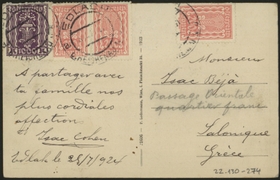 EDLACH
1000
A partager avec
ta famille nos
plus cordiales
affection
et Isac Cohen
Edlah 25/7/924
Monsieur
Isac Béjà
Passage Orientale
quartier franc
Salonique
Grèce
22.130-274